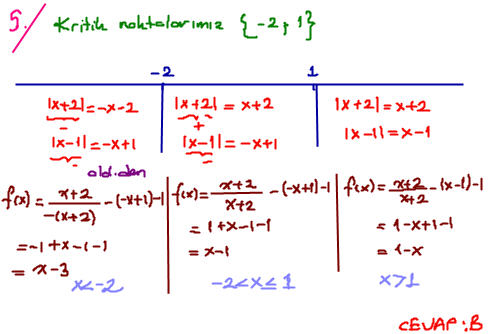 5. Kritik noktalarımız {-2, 1}
-2 1
|x+2|=-x-2
-
|x-1|=-x+1
-
olduğundan
f(x)= x+2/-(x+2) -(-x+1)-1
=-1+x-1-1
= x-3
x<-2
|x+2|= x+2
+
|x-1|=-x+1
-
f(x)= x+2/x+2 -(-x+1)-1
=1+x-1-1
= x-1
-2<x≤1
|x+2|=x+2
|x-1|=x-1
f(x)= x+2/x+2 -(x-1)-1
=1-x+1-1
=1-x
x>1
CEVAP:B